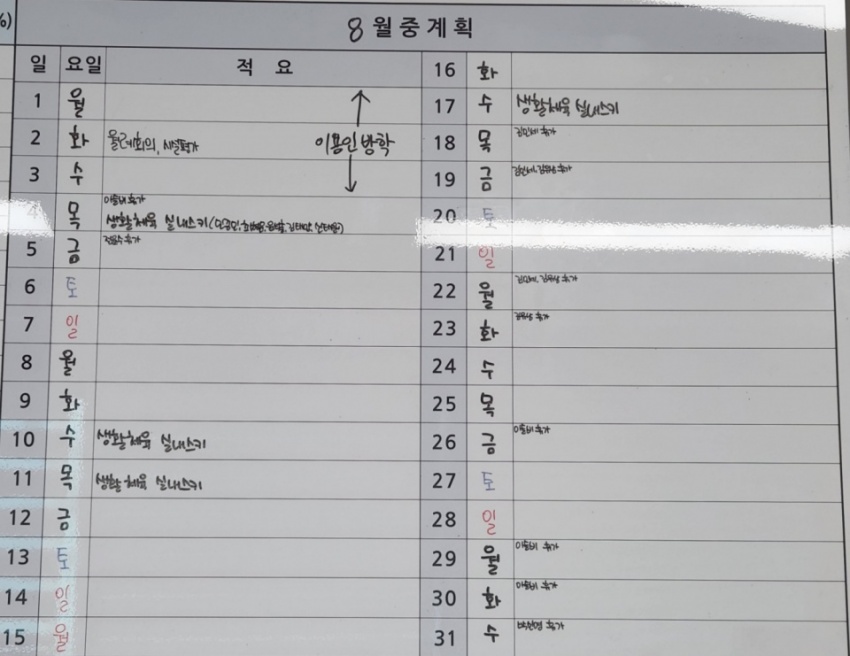 %)
8월중계획
일 요일 적 요
1 월
2 화 월례회의, 시설평가
이용인 방학
3 수
4 목 이슬비 휴가
생활체육 실내스키
5 금 휴가
6 토
7 일
8 월
9 화
10 수 생활체육 실내스키
11 목 생활체육 실내스키
12 금
13 토
14 일
15 월
16 화
17 수 생활체육 실내스키
18 목 휴가
19 금 휴가
20 토
21 일
22 월 휴가
23 화 휴가
24 수
25 목
26 금 이슬비 휴가
27 토
28 일
29 월 이슬비 휴가
30 화 이슬비 휴가
31 수 휴가